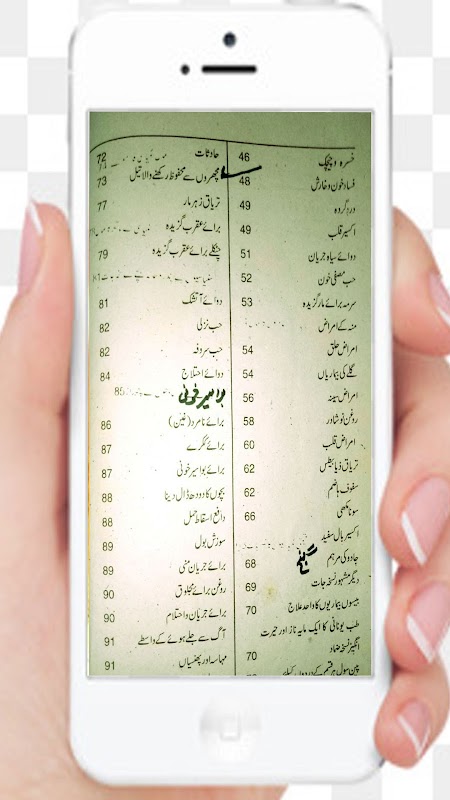 خسرہ و چیچک 46
فساد خون و خارش 48
درد گردہ 49
اکسیر قلب 49
دوائے سیاہ جریان 51
حب مصفی خون 52
سرمہ برائے مار گزیدہ 53
منہ کے امراض
امراض حلق 54
گلے کی بیماریاں 54
امراض سینہ 56
روغن نوشادر 58
امراض قلب 60
تریاق ذیابیطس 62
سفوف ہاضم 62
سونا مکھی 66
اکسیر بال سفید
جادو کی مرہم 68
دیگر مشہور نسخہ جات 69
بیسوں بیماریوں کا واحد علاج 70
طب یونانی کا ایک مایہ ناز اور حیرت
انگیز نسخہ ضماد 70
حادثات 72
مچھروں سے محفوظ رکھنے والا تیل 73
تریاق زہر مار 77
برائے عقرب گزیدہ
چٹکلے برائے عقرب گزیدہ 79
دوائے آتشک 81
حب نزلی 82
حب سرفہ 82
دوائے احتلاج 84
بواسیر خونی 85
برائے نامرد (عنین) 86
برائے ککرے 87
برائے بواسیر خونی 87
بچوں کا دودھ ڈال دینا 88
دافع اسقاط حمل 88
سوزش بول 89
برائے جریان منی 89
روغن برائے مجلوق 90
برائے جریان و احتلام 90
آگ سے جلے ہوئے کے واسطے 91
مہاسہ اور پھنسیاں 91